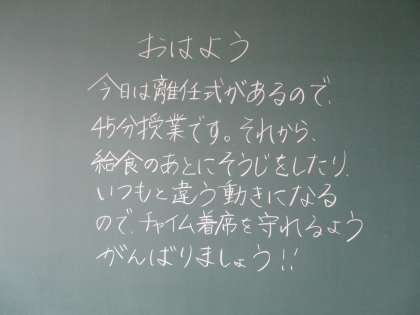 おはよう
今日は離任式があるので、
45分授業です。それから、
給食のあとにそうじをしたり、
いつもと違う動きになる
ので、チャイム着席を守れるよう
がんばりましょう!!